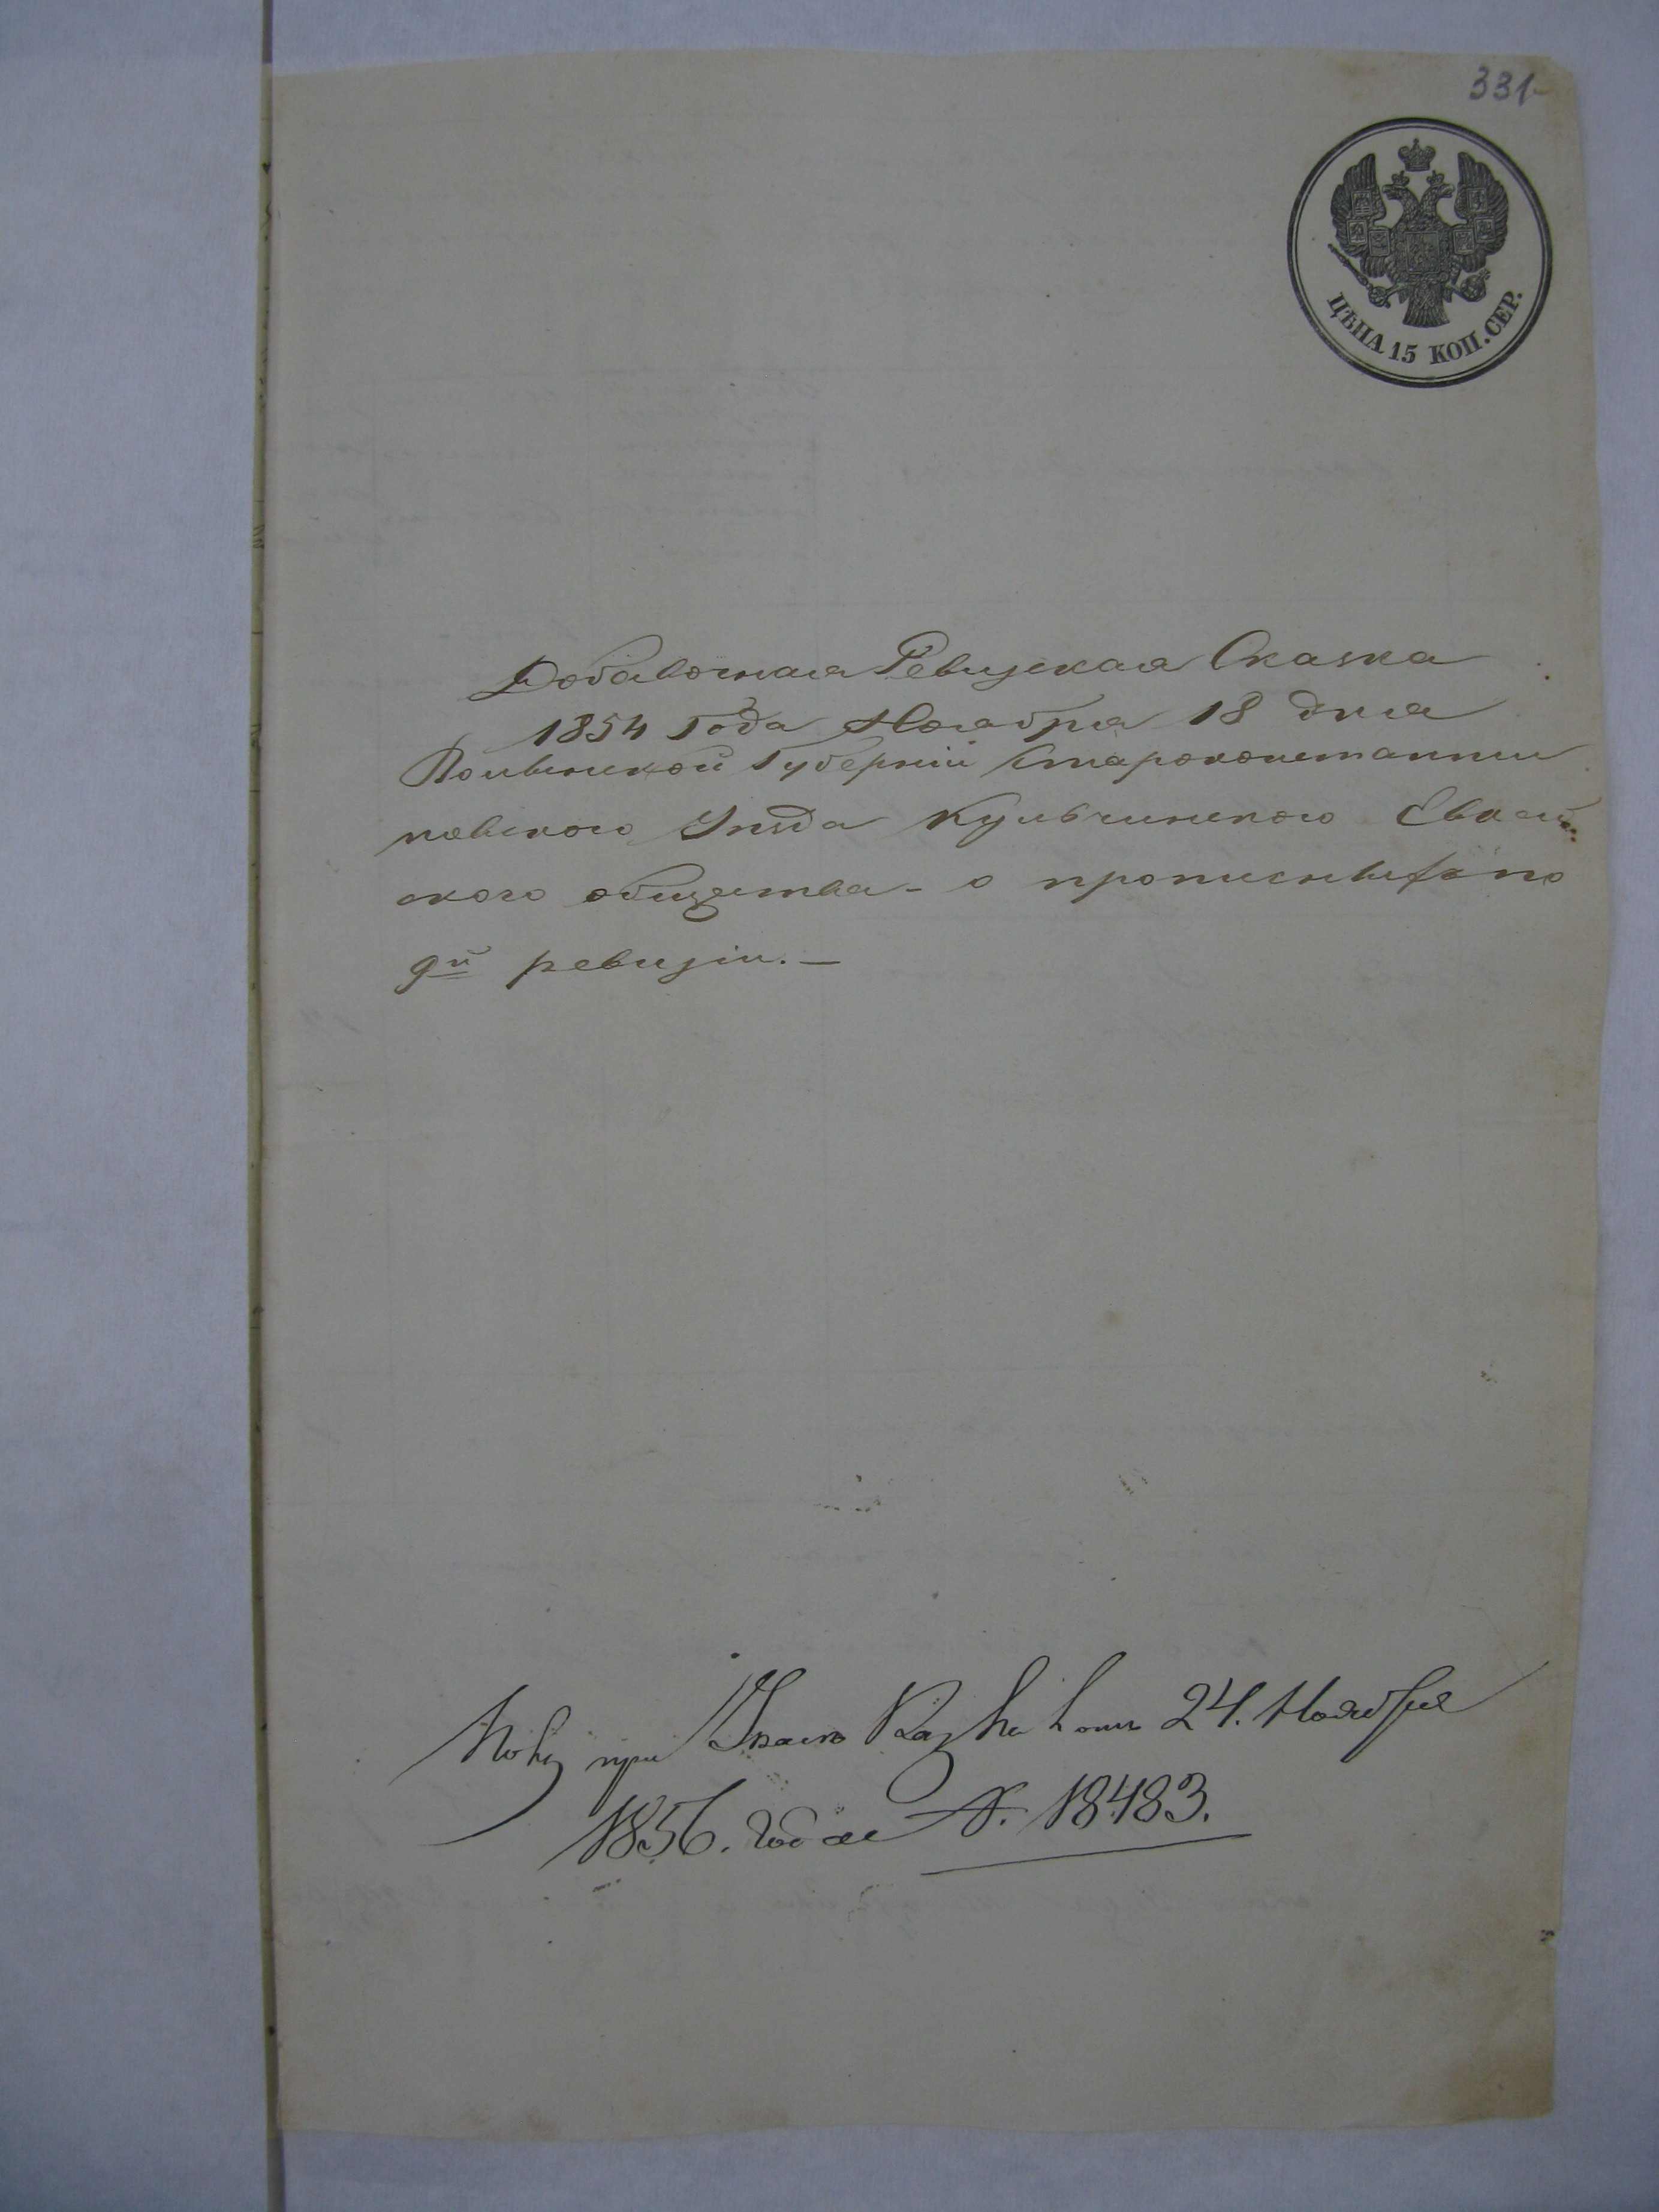 331
ЦѢНА 15 КОП. СЕР.
Добавочная Ревизская Сказка
1854 Года Ноября 18 дня
Волынской Губерніи Староконстанти
новскаго Уѣзда Кульчинского Еврей
ского общества - о прописныхъ по
9й ревизіи. —
при Указѣ Каз 24. Ноября
1856. года №. 18483.